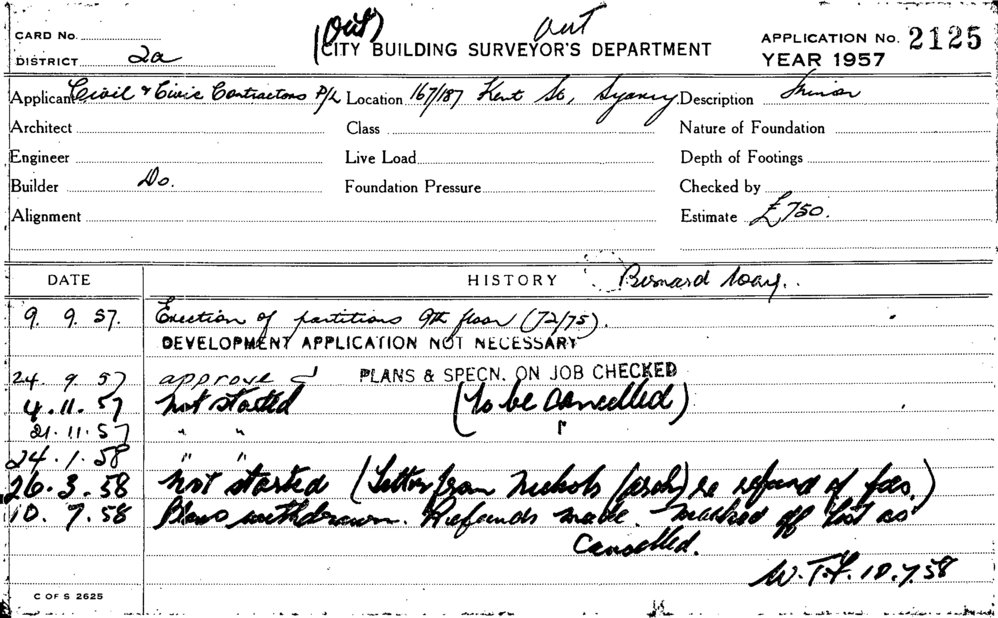 (Out) Out
CARD No.
CITY BUILDING SURVEYOR'S DEPARTMENT
APPLICATION No. 2125
DISTRICT 2a
YEAR 1957
Applicant Civil & Civic Contractors P/L Location 167/187 Kent St, Sydney Description Minor
Architect Class Nature of Foundation
Engineer Live Load Depth of Footings
Builder Do. Foundation Pressure Checked by
Alignment Estimate £750.
DATE HISTORY Bernard Way.
9. 9. 57. Erection of partitions 9th floor (72/75).
DEVELOPMENT APPLICATION NOT NECESSARY
24. 9. 57 approved PLANS & SPECN. ON JOB CHECKED
4. 11. 57 not started (to be cancelled)
21. 11. 57 " "
24. 1. 58 " "
26. 3. 58 not started (Letter from Nichols (arch) re refund of fees.)
10. 7. 58 Plans withdrawn. Refunds made. Marked off list as
Cancelled.
W.T.F. 10.7.58
C OF S 2625